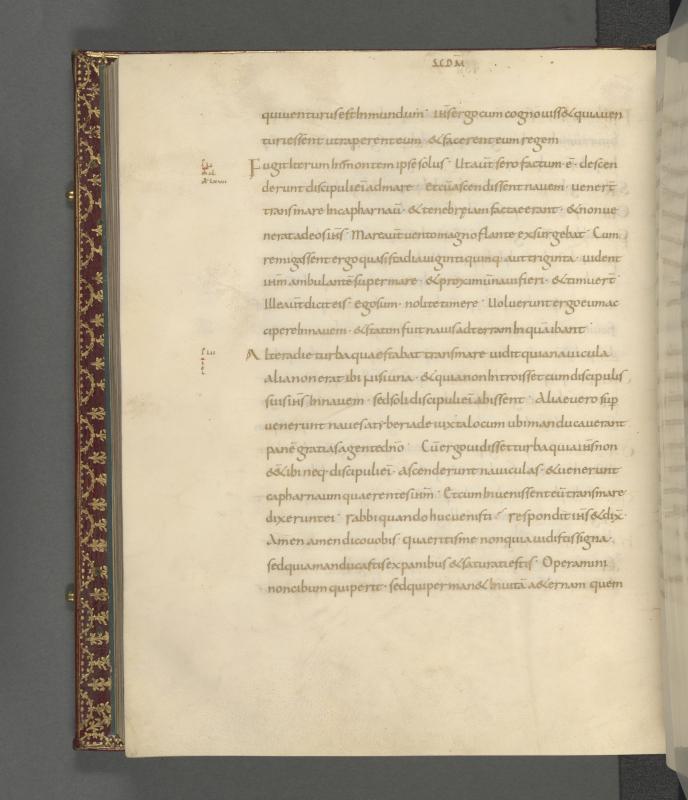 SCDM
quiventurus est In mundum· ihs ergo cum cognovisset quia ven
turi essent ut raperent eum· & facerent eum regem
Fugit iterum In montem ipse solus· Ut aut sero factum· ē· descen
derunt discipuli ei ad mare· et cū ascendissent navem· venert
trans mare In capharnaū· & tenebrę iam factae erant· & non ve
nerat ad eos ihs· Mare aut vento magno flante exsurgebat· Cum
remigassent ergo quasi stadia viginti quinq aut triginta· vident
ihm ambulantē super mare· & proximū navi fieri· & timuert
Ille aut dicit eis· ego sum· nolite timere· Voluerunt ergo eum ac
cipere In navem· & statim fuit navis ad terram In quā ibant
Altera die turba quae stabat trans mare· vidit quia navicula
alia non erat ibi nisi una· & quia non Introisset cum discipulis
suis ihs In navem· sed soli discipuli ei abissent· Aliae vero sup
venerunt naves a tyberiade iuxta locum ubi manducaverant
panē gratias agente dno· Cū ergo vidisset turba quia ihs non
ess& ibi neq· discipuli ei· ascenderunt naviculas· & venerunt
capharnaum quaerentes ihm· Et cum Invenissent eū trans mare
dixerunt ei· rabbi quando huc venisti· respondit ihs & dix·
Amen amen dico vobis· quaeritis me non quia vidistis signa·
sed quia manducastis ex panibus & saturati estis· Operamini
non cibum qui perit· sed qui perman& In vitā aeternam quem